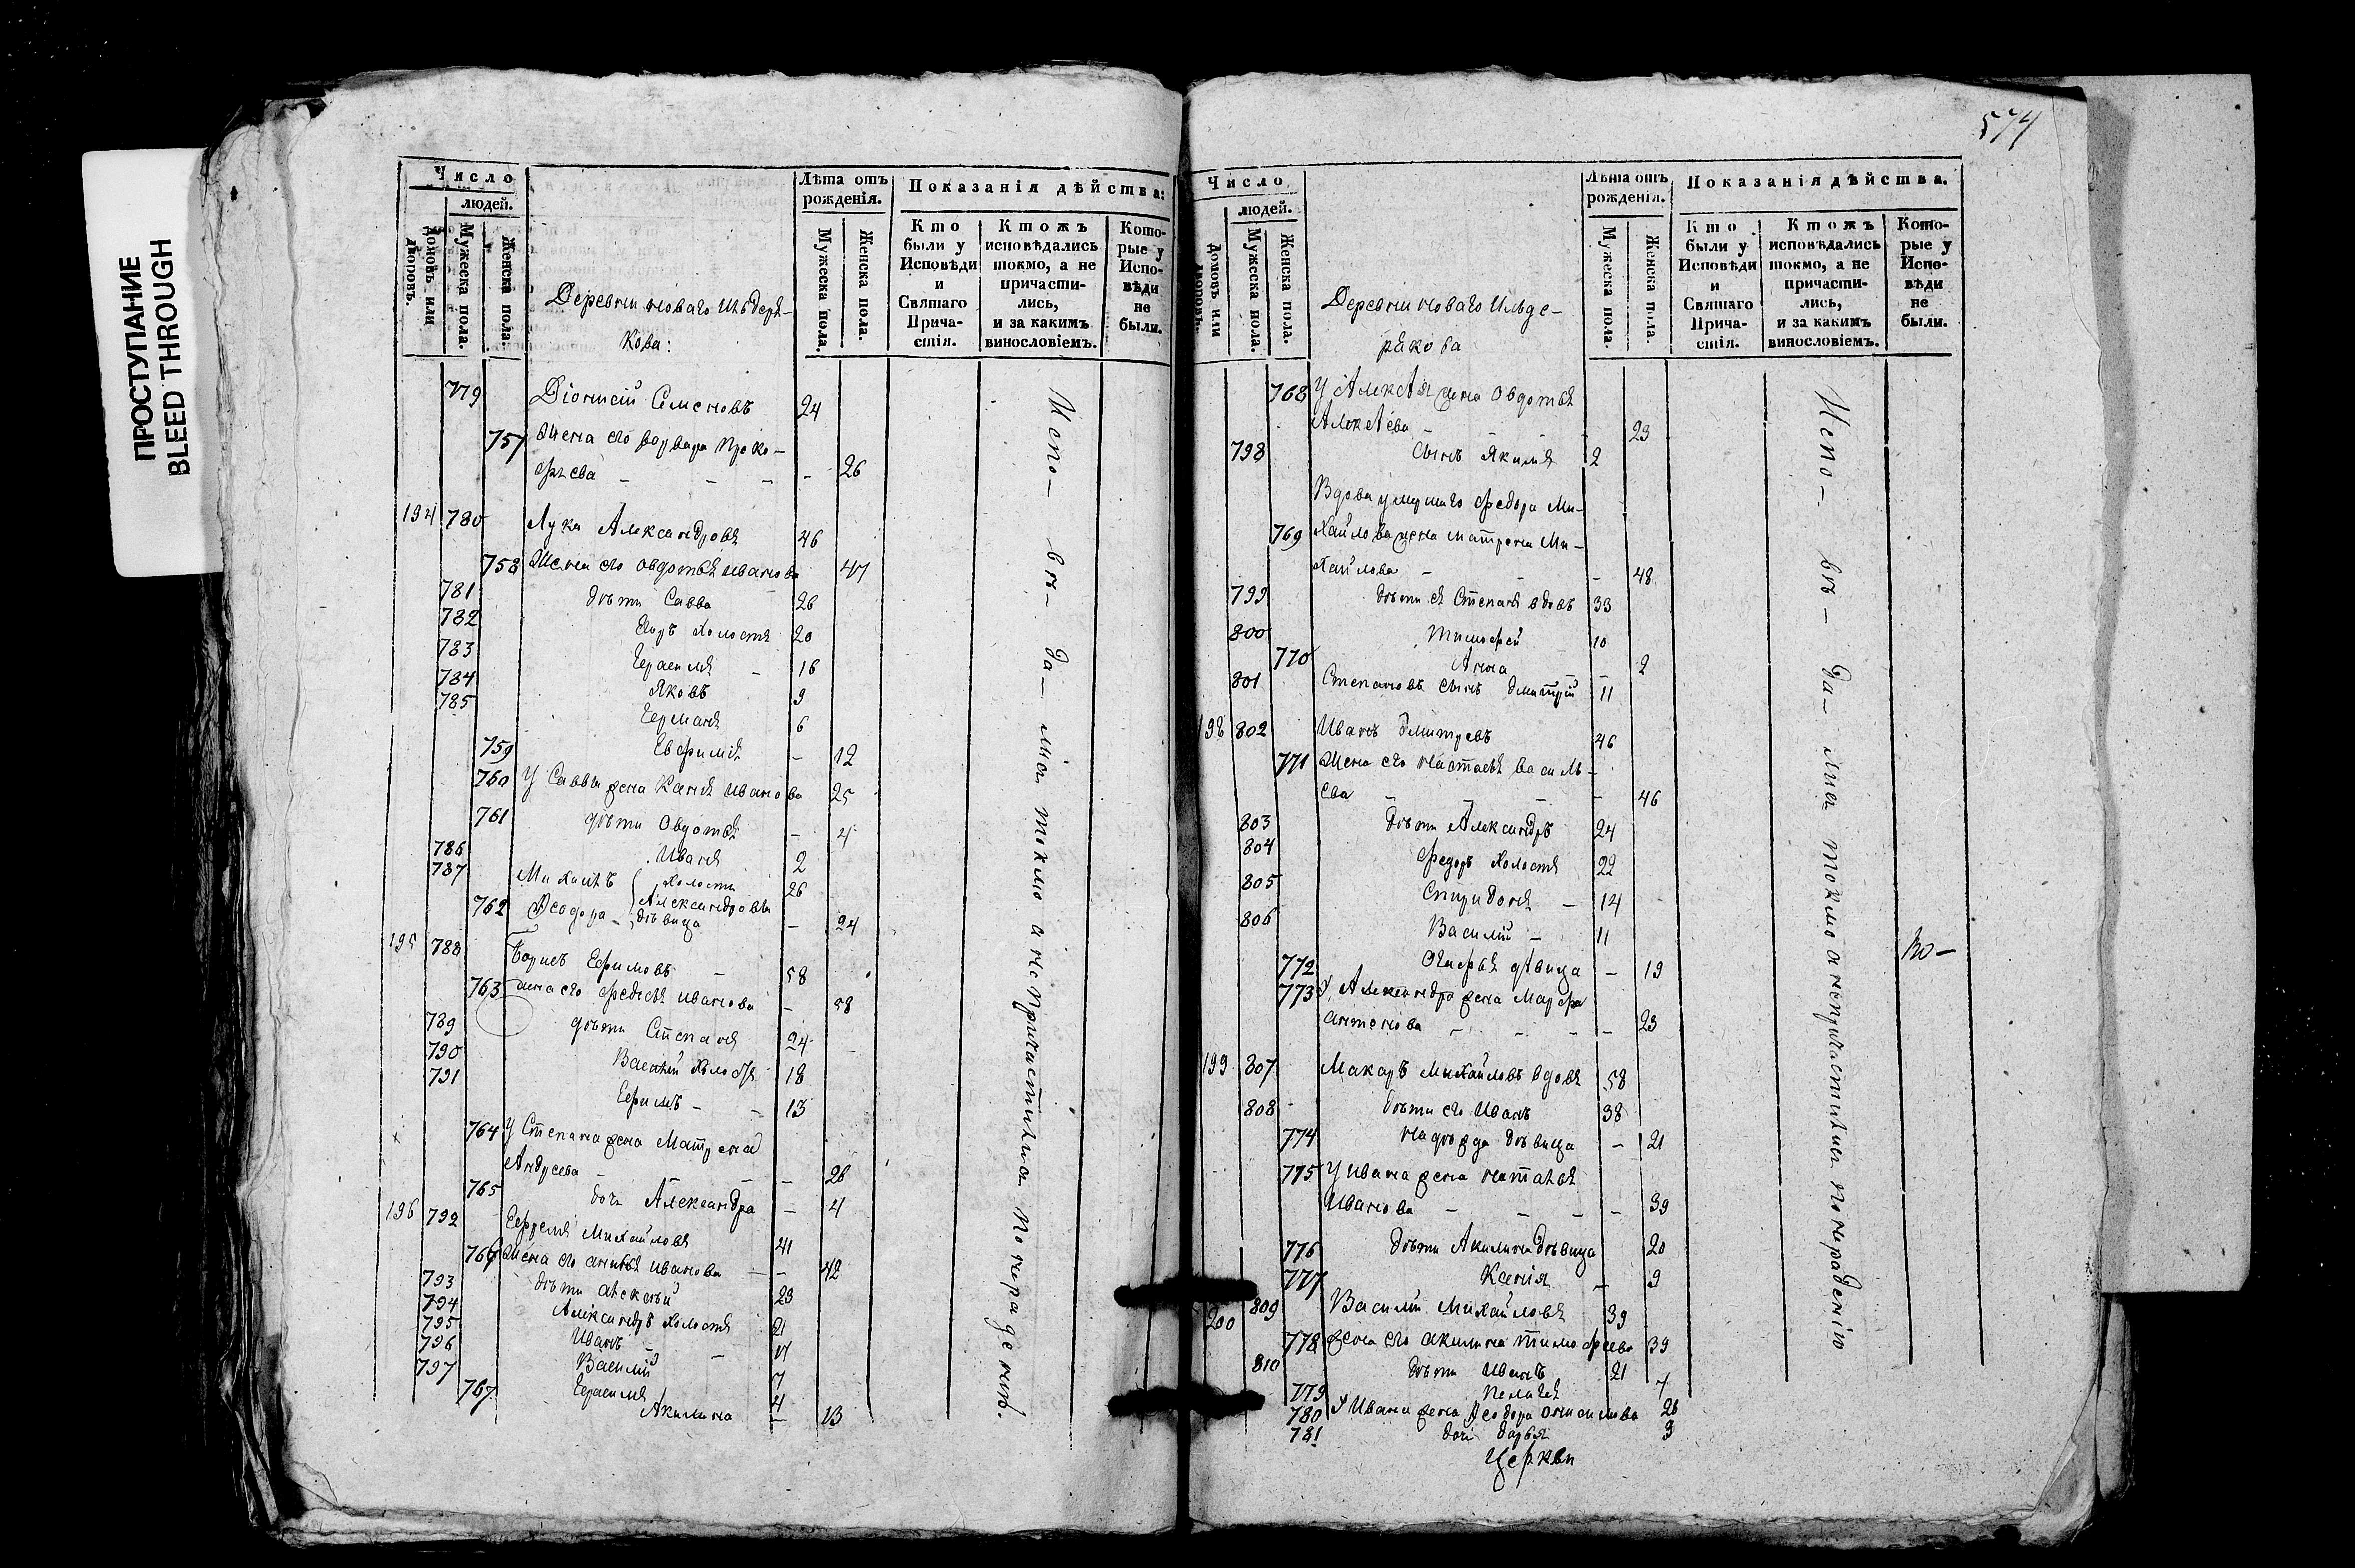 ПРОСТУПАНИЕ
BLEED THROUGH
574
Число
людей.
домовъ или дворовъ.
Мужеска пола.
Женска пола.
Деревни Новаго Ильдеря-
кова:
Лѣта отъ рожденія.
Мужеска пола.
Женска пола.
Показанія дѣйства:
Кто были у Исповѣди и Святаго Прича-стія.
Ктожъ исповѣдались токмо, а не причасти-лись, и за какимъ винословіемъ.
Кото-рые у Испо-вѣди не были.
779 Діонисій Семеновъ 24
757 Жена его варвара Проко-
фьева - - - - 26
194 780 Лука Александровъ 46
758 Жена его овдотья иванова 47
781 дѣти Савва 26
782 Егоръ холостъ 20
783 Герасимъ - 16
784 Яковъ 9
785 Германъ 6
759 Евфимія - 12
760 У Саввы жена Ксенія иванова 25
761 дѣти Овдотья - 4
786 Иванъ 2
787 Михаилъ холостъ 26
Александровы
762 Ѳеодора - дѣвица - 24
195 788 Борисъ Ефимовъ - 58
763 жена его Федосья иванова - 58
789 дѣти Степанъ 24
790 Василій холостъ 18
791 Ефимъ - - 13
764 У Степана жена Матрена
Андреева - - - 26
765 дочь Александра - 4
196 792 Ефремъ Михайловъ 41
766 Жена его иванова - - 42
793 дѣти Алексѣй 23
794 Александръ холостъ 21
795 Иванъ - - 17
796 Василій 7
797 Герасимъ 4
767 Акилина - 13
Испо-вѣ-да-лись токмо а не причастились по нераденію.
Число
людей.
домовъ или дворовъ.
Мужеска пола.
Женска пола.
Деревни Новаго Ильде-
рякова
Лѣта отъ рожденія.
Мужеска пола.
Женска пола.
Показанія дѣйства.
Кто были у Исповѣди и Святаго Прича-стія.
Ктожъ исповѣдались токмо, а не причасти-лись, и за какимъ винословіемъ.
Кото-рые у Испо-вѣди не были.
768 У Алексѣя жена Овдотья
Алексѣева - - - 23
798 Сынъ Якимъ 2
Вдова умершаго Федора Ми-
769 хайлова жена матрена Ми-
хайлова - - - 48
799 дѣти ея Степанъ вдовъ 33
800 Тимофей 10
770 Анна - - 2
801 Степановъ сынъ дмитрій 11
198 802 Иванъ дмитревъ 46
771 Жена его Настасья василь-
ева - - - - 46
803 дѣти Александръ 24
804 Федоръ холостъ 22
805 Спиридонъ - 14
806 Василій - 11
772 дѣвица - 19
773 У Александра жена Марфа
антонова - - - - 23
199 807 Макаръ Михайловъ вдовъ 58
808 дѣти его Иванъ 38
774 Надежда дѣвица - 21
775 У ивана жена наталья
Иванова - - - - 39
776 дѣти Акилина дѣвица 20
777 Ксенія - 9
200 809 Василій Михайловъ 39
778 жена его акилина тимофеева 39
810 дѣти Иванъ 21
779 Пелагея 7
780 У Ивана жена Ѳеодора онисимова 26
781 дочь дарья 3
Церкви
Испо-вѣ-да-лись токмо а не причастились по нераденію